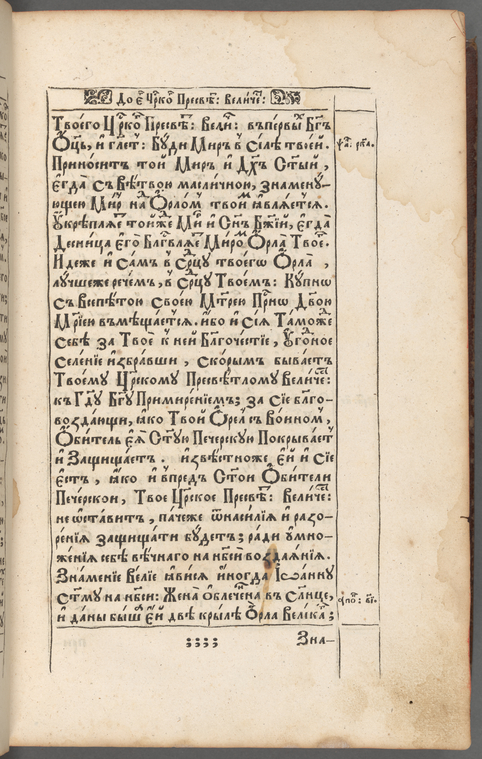 До Є҃ Цр҃ко҃ Пресвѣ: Величє:
Твоего Цр҃ко҃ Пресвѣ: Вели: въпервы Бг҃ъ
Ѿц҃ъ, и гл҃ет: Буди Миръ в Силѣ твоей. ѱа҃: рк҃а.
Приноситъ той Миръ и Дх҃ъ Ст҃ый,
Єгда съ Вѣтвою масличною, знамену-
ющею Миръ на Ѻрломъ твои ꙗвлѧется.
Укрѣплѧе тойже Ми и Сн҃ъ Бж҃ій, Єгда
Десница Єго Блг҃влѧе Миро Ѻрла Твое.
Идеже и Самъ в Ср҃цу твоегѡ Ѻрла,
лучшеже речемъ, в Ср҃цу Твоемъ: Купнѡ
съ Всепѣтою Своею Мт҃рею Пр҃нѡ Дв҃ою
Мр҃іею въмѣщается. ибо и Сіѧ Таможе
Себѣ за Твое к ней Благочестіе, Угодное
Селеніе избравши, скорымъ бываетъ
Твоему Цр҃скому Пресвѣтлому Величе:
къ Гд҃у Бг҃у Примиреніемъ; за Сіе Благо-
воздающи, ꙗко Твой Ѻрелъ съ Воиномъ,
Ѻбитель Єѧ Ст҃ую Печерскую Покрываєт
и Защищаетъ. извѣстноже Єй и Сіе
Єстъ, ꙗко и впредъ Ст҃ои Ѻбители
Печерскои, Твое Цр҃ское Пресвѣ: Величе:
не ѡставитъ, пачеже ѿнасилія и разо-
ренія защищати будетъ; ради умно-
женія себѣ вѣчнаго на нб҃си воздаянія.
Знаменіе Веліе ꙗвися иногда Іѡанну
Ст҃му на нб҃си: Жена Ѻблечена въ Сл҃нце, апо: в҃і.
и даны быша Єй двѣ крылѣ Ѻрла Велика;
;;;; Зна-